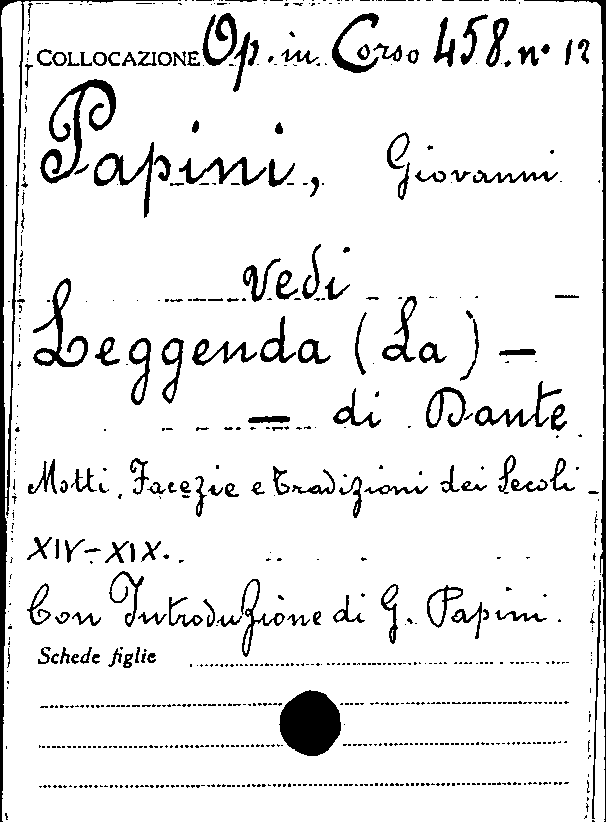 COLLOCAZIONE Op. in Corso 458. n° 12
Papini, Giovanni
Vedi
Leggenda (La) –
– di Dante
Motti, Facezie e tradizioni dei Secoli
XIV–XIX.
Con Introduzione di G. Papini.
Schede figlie